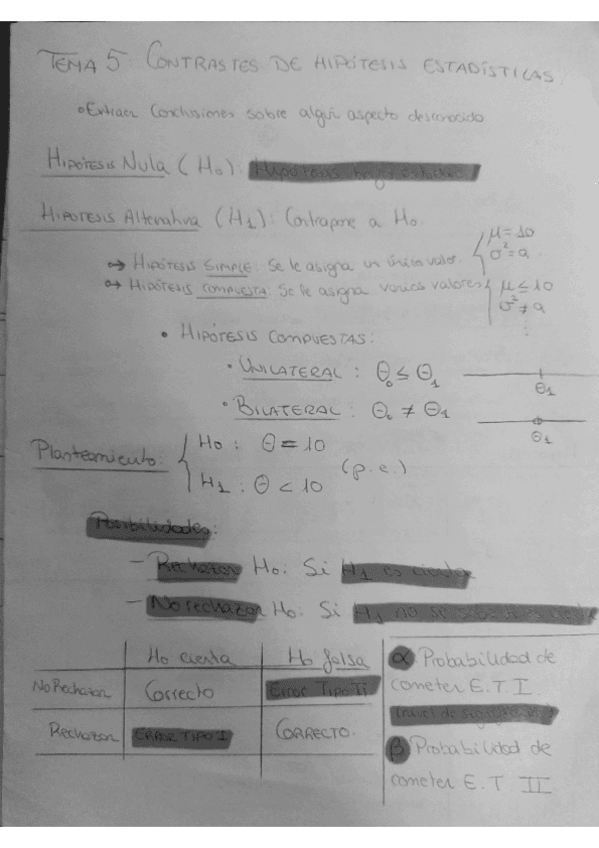 TEMA 5: CONTRASTES DE HIPÓTESIS ESTADÍSTICAS.
• Extraer Conclusiones sobre algún aspecto desconocido
HIPÓTESIS NULA (H₀):
HIPÓTESIS Alternativa (H₁): Contrapone a H₀.
→ HIPÓTESIS SIMPLE: Se le asigna un único valor. { μ = 10
σ² = a
→ HIPÓTESIS COMPUESTA: Se le asigna varios valores { μ ≤ 10
σ² ≠ a
⋮
• HIPÓTESIS COMPUESTAS:
• UNILATERAL: Θ₀ ≤ Θ₁
Θ₁
• BILATERAL: Θ₀ ≠ Θ₁
Θ₁
Planteamiento: { H₀: Θ = 10
H₁: Θ < 10 (p.e.)
Posibilidades:
- Rechazar H₀: Si H₁ es cierta
- No rechazar H₀: Si H₁ no se sabe
H₀ cierta H₀ falsa
No Rechazar Correcto Error Tipo II
Rechazar ERROR TIPO I CORRECTO.
α Probabilidad de
cometer E.T I
(nivel de significación)
β Probabilidad de
cometer E.T II